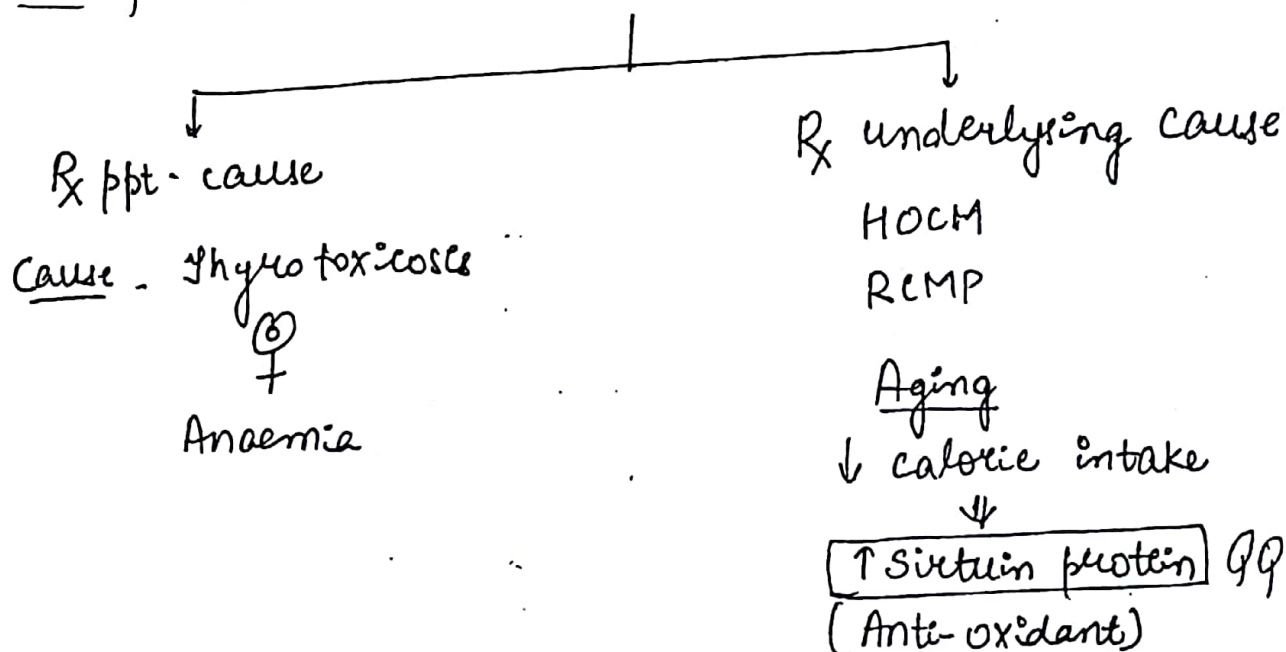 Rx ppt. cause
Cause - Thyrotoxicoses
Anaemia
Rx underlysing cause
HOCM
RCMP
Aging
↓ calorie intake
⇓
↑ Sirtuin protein QQ
(Anti-oxidant)